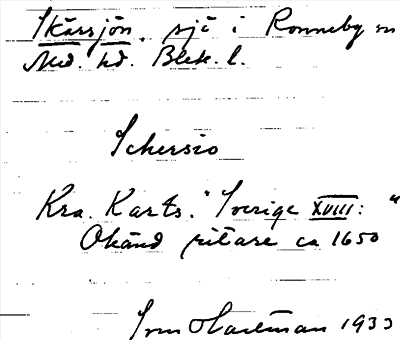 Skärsjön, sjö i Ronneby sn
Med. hd. Blek. l.
Schersio
Kra. Karts. "Sverige XVIII: "
Okänd ritare ca 1650
Hartman 1933